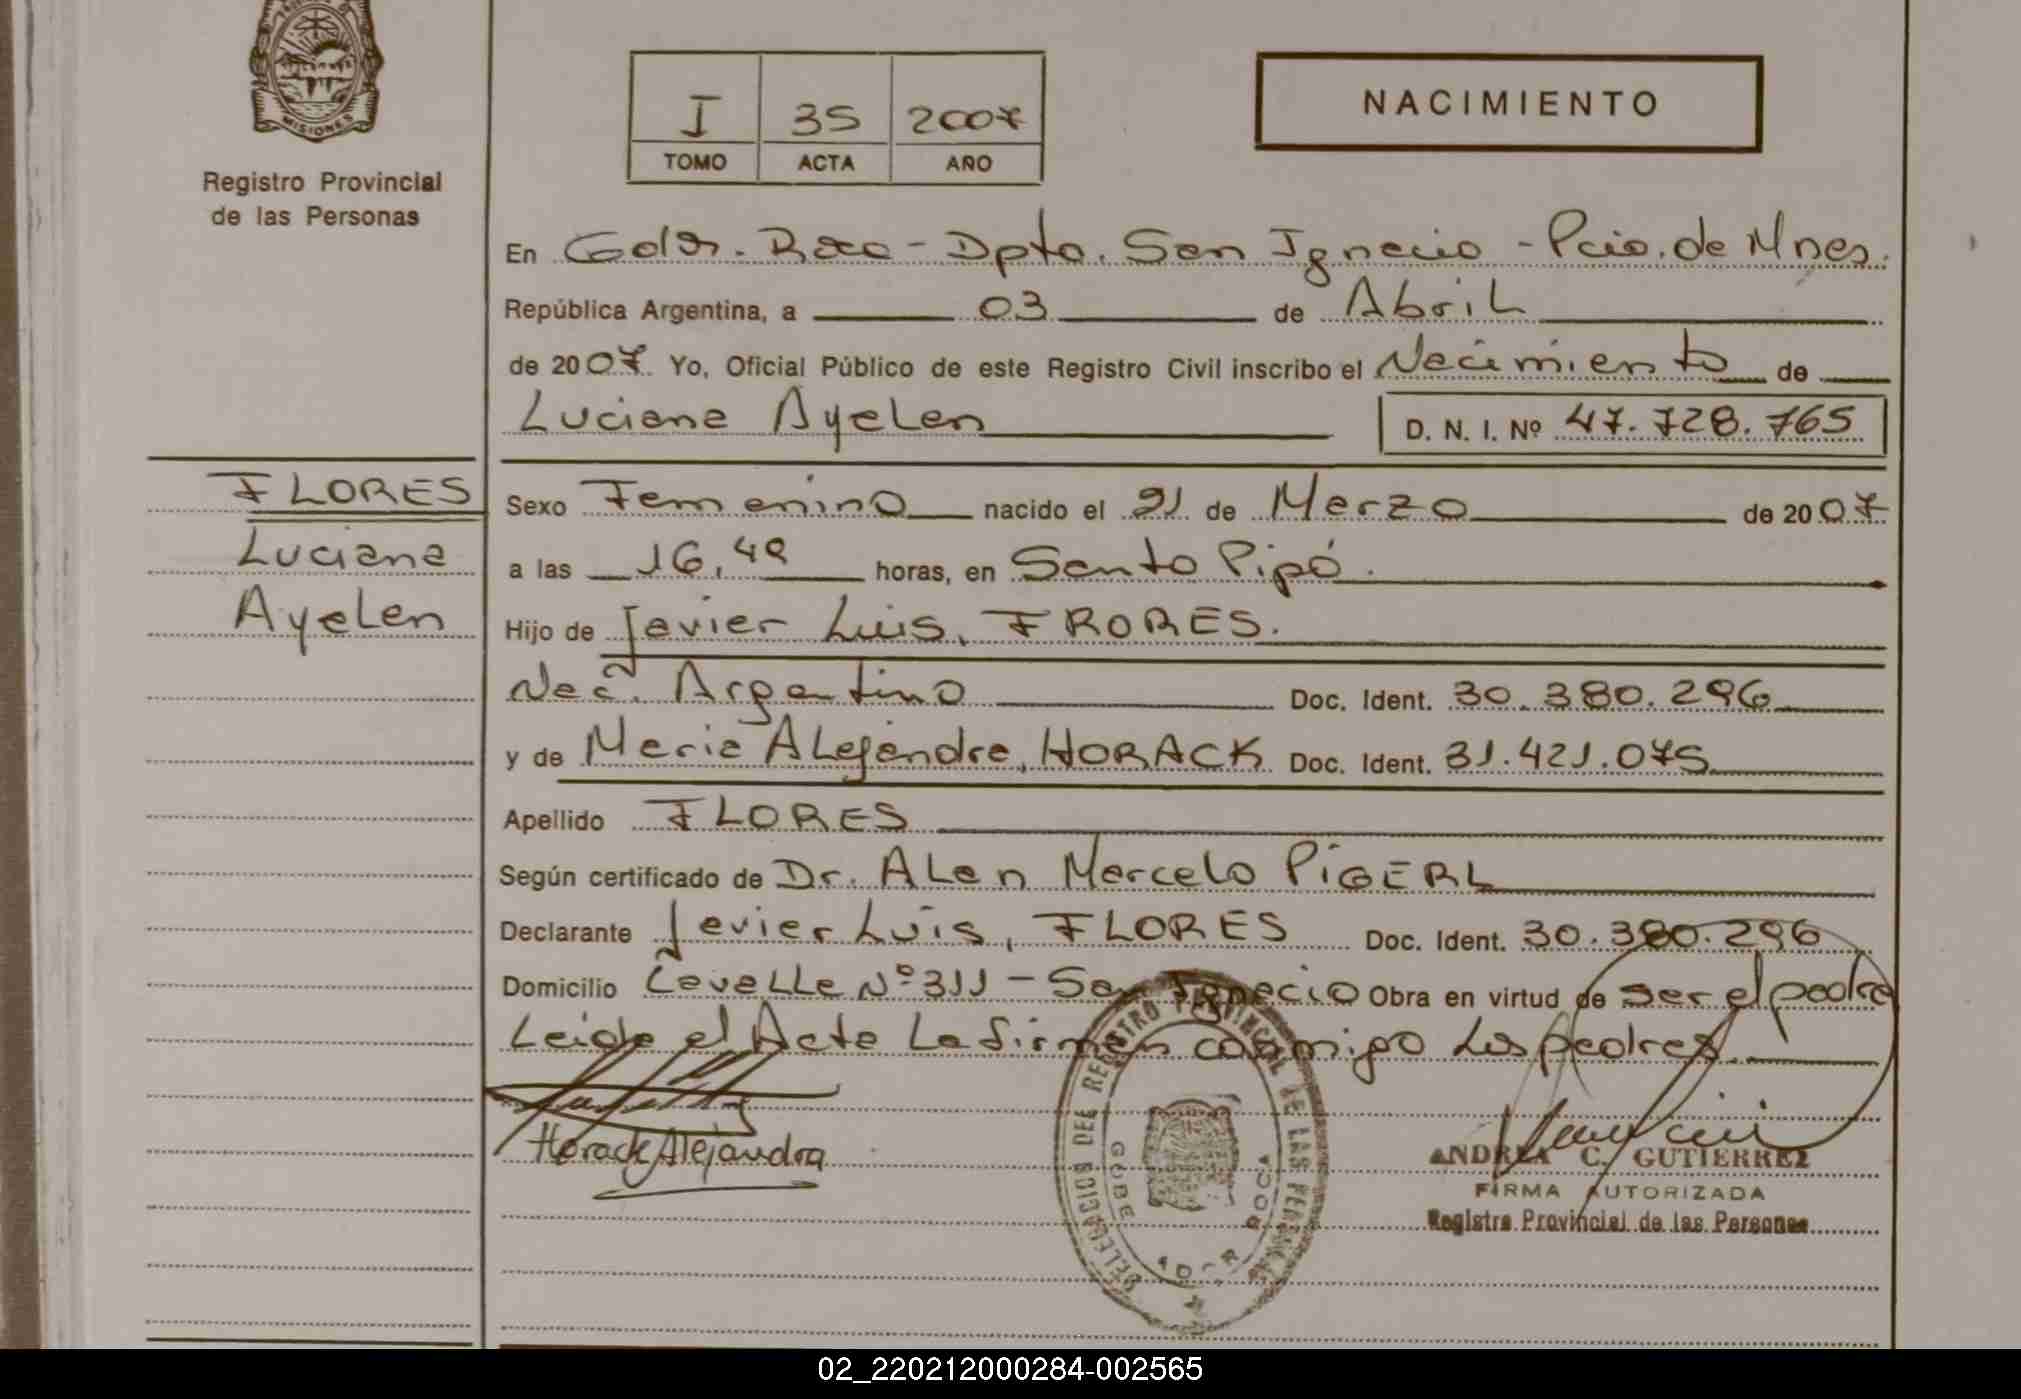 MISIONES
Registro Provincial
de las Personas
I 35 2007
TOMO ACTA AÑO
NACIMIENTO
En Gdor. Roca - Dpto. San Ignacio - Pcia. de Mnes.
República Argentina, a 03 de Abril
de 2007 Yo, Oficial Público de este Registro Civil inscribo el Nacimiento de
Luciana Ayelen D. N. I. Nº 47.728.765
FLORES
Luciana
Ayelen
Sexo Femenino nacido el 21 de Marzo de 2007
a las 16, horas, en Santo Pipó.
Hijo de Javier Luis, FRORES.
Nac. Argentino Doc. Ident. 30.380.296
y de Maria Alejandra, HORACK Doc. Ident. 31.421.075
Apellido FLORES
Según certificado de Dr. Alan Marcelo PIGERL
Declarante Javier Luis, FLORES Doc. Ident. 30.380.296
Domicilio Lavalle Nº 311 - San Ignacio Obra en virtud de ser el padre
Leida el Acta La firman conmigo Los padres.
Horack Alejandra
DELEGACION DEL REGISTRO PROVINCIAL DE LAS PERSONAS
ROCA
ANDREA C. GUTIERREZ
FIRMA AUTORIZADA
Registro Provincial de las Personas
02_220212000284-002565